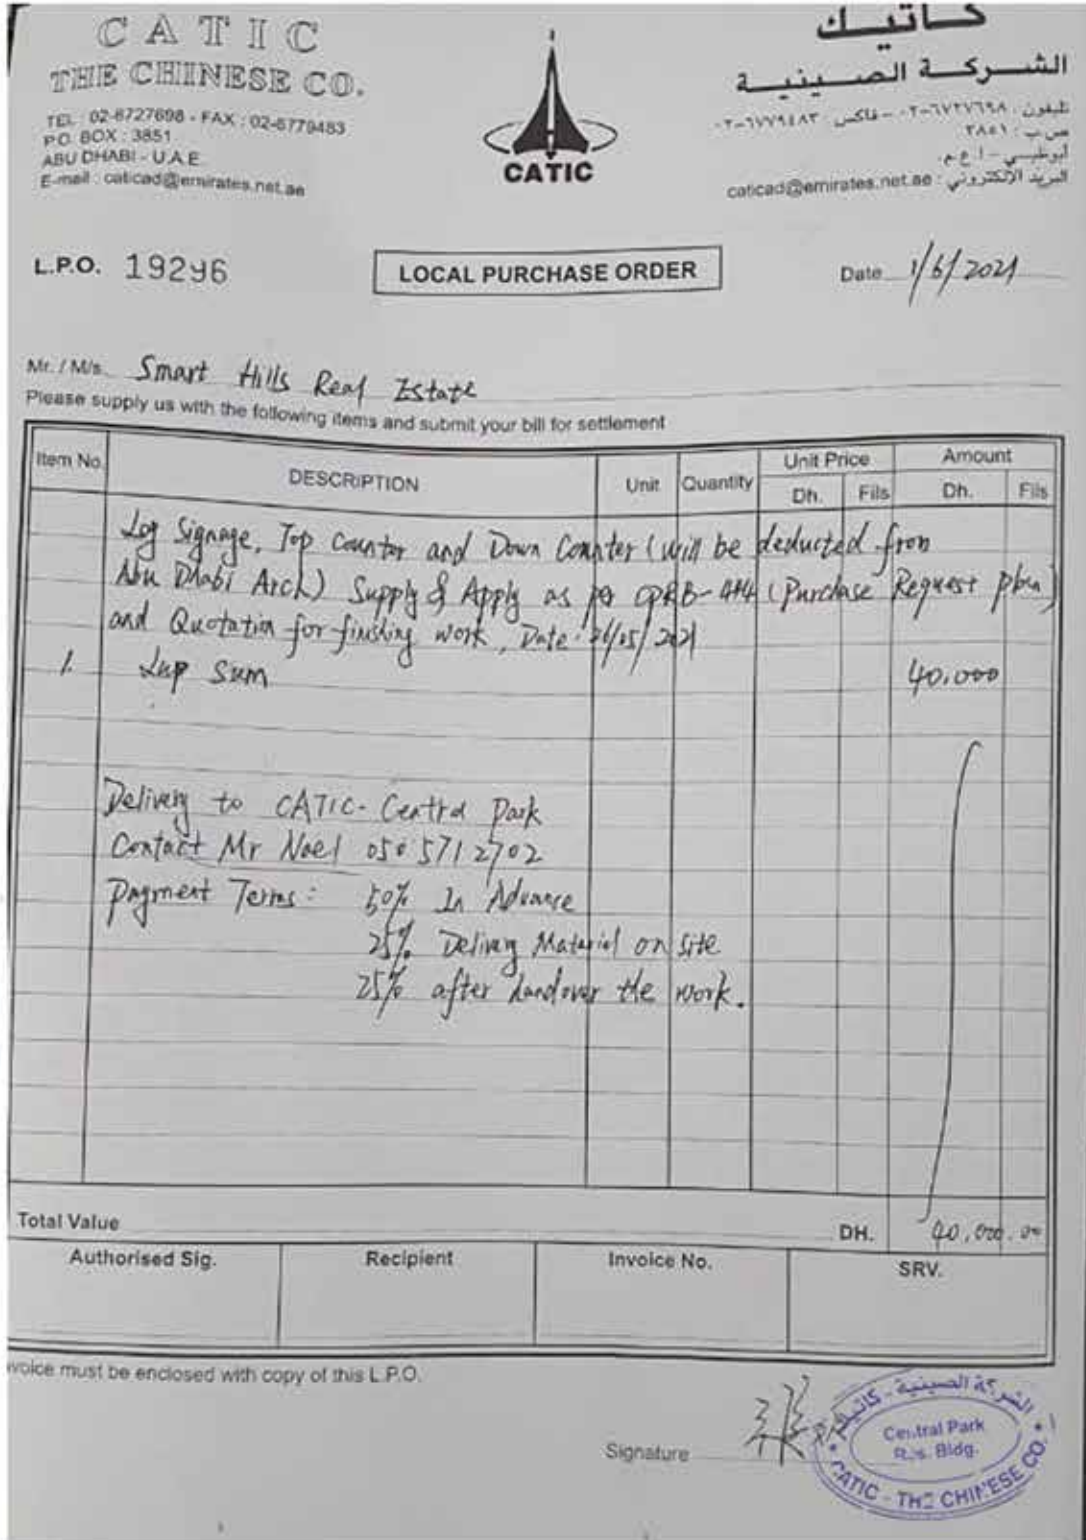 CATIC
THE CHINESE CO.
TEL : 02-6727698 - FAX : 02-6779483
P.O. BOX : 3851
ABU DHABI - U.A.E.
E-mail : caticad@emirates.net.ae
CATIC
كاتيك
الشركة الصينية
تليفون : ٦٧٢٧٦٩٨-٠٢ - فاكس : ٦٧٧٩٤٨٣-٠٢
ص ب : ٣٨٥١
أبوظبي - ا ع م.
البريد الالكتروني : caticad@emirates.net.ae
L.P.O. 19296
LOCAL PURCHASE ORDER
Date 1/6/2021
Mr. / M/s. Smart Hills Real Estate
Please supply us with the following items and submit your bill for settlement
Item No. DESCRIPTION Unit Quantity Unit Price Amount
Dh. Fils Dh. Fils
Log Signage, Top Counter and Down Counter (will be deducted from
Abu Dhabi Arch) Supply & Apply as per (Purchase Request
and Quotation for finishing work, Date: /05/2021
1. Lup Sum 40,000
Delivery to CATIC- Central Park
Contact Mr Noel 050 5712702
Payment Terms: 50% In Advance
25% Delivery Material on site
25% after handover the work.
Total Value DH. 40,000.00
Authorised Sig. Recipient Invoice No. SRV.
nvoice must be enclosed with copy of this L.P.O.
Signature
الشركة الصينية - كاتيك
Central Park
Res. Bldg.
CATIC - THE CHINESE CO.